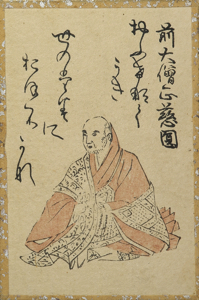 前大僧正慈圓
おほけなく
うき
世のたみに
おほふかな